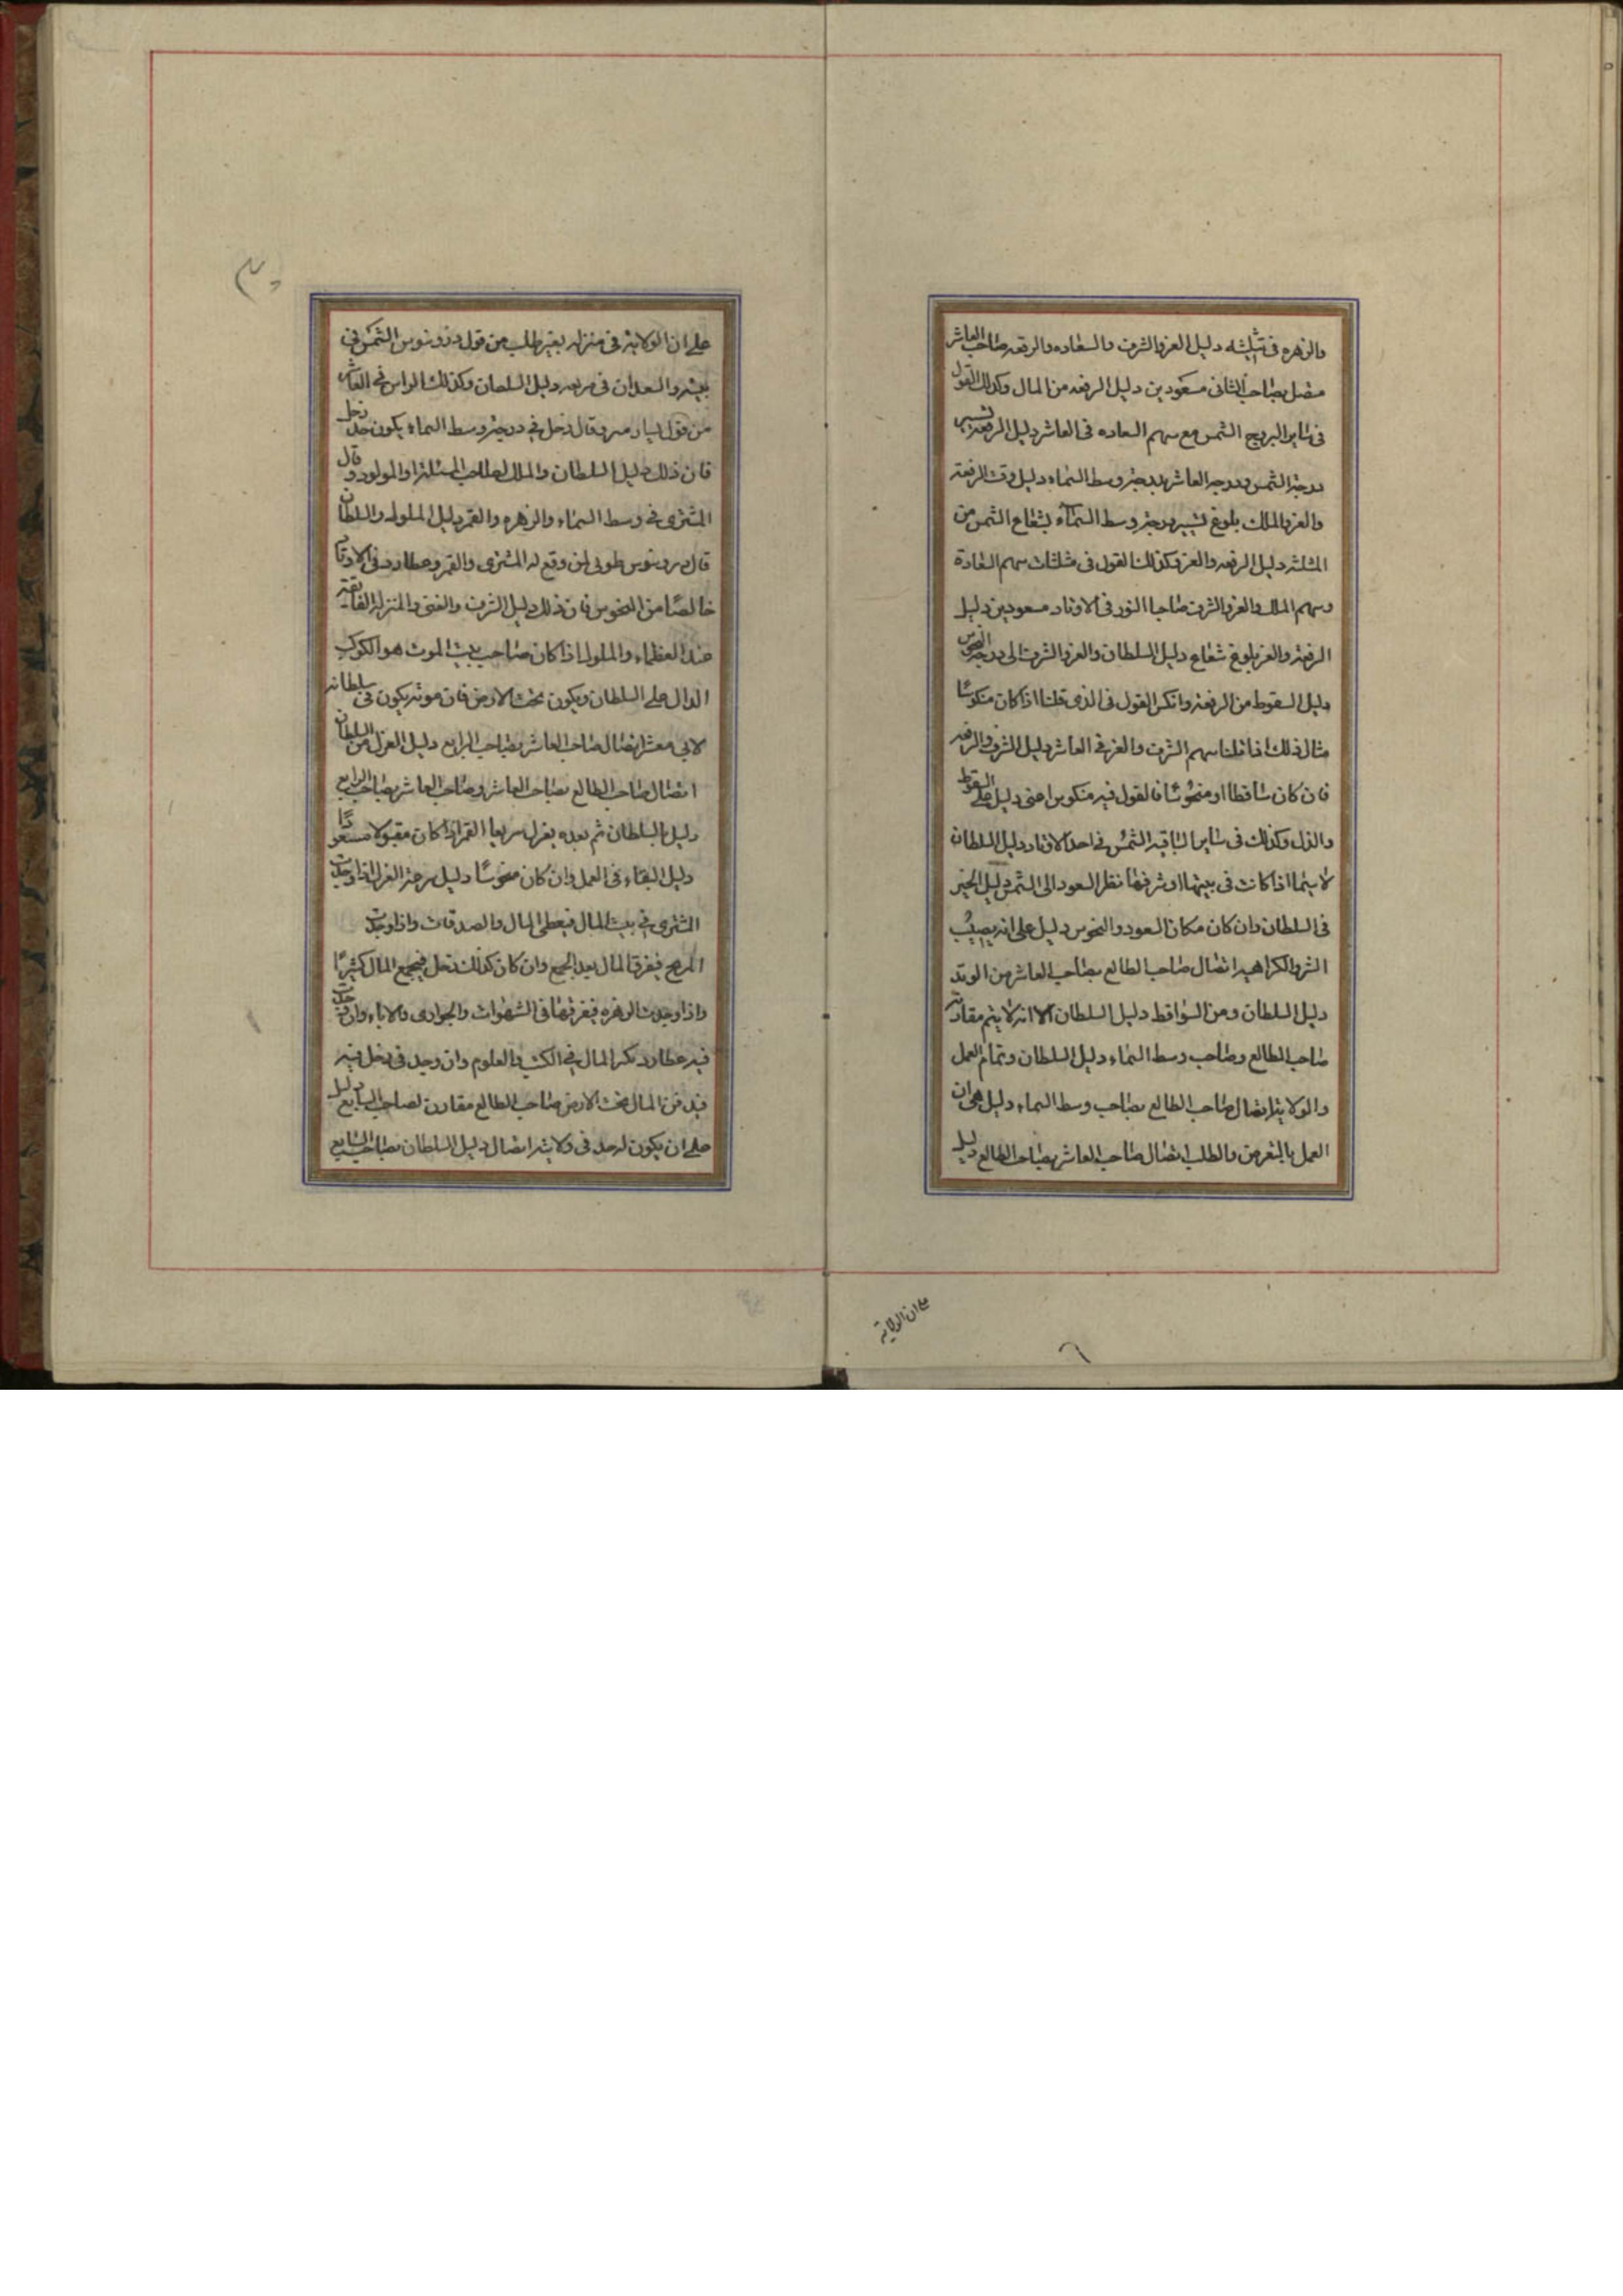 والزهره فى تثليثه دليل العز والشرف والسعاده والرفعه صاحب العاشر
متصل بصاحب الثانى مسعودين دليل الرفعه من المال وكذلك القول
فى ساير البروج الشمس مع سهم السعاده فى العاشر دليل الرفعه تسيير
درجة الشمس ودرجه العاشر بدرجة وسط السماء دليل وقت الرفعة
والعز والملك بلوغ تسيير درجة وسط السماء لشعاع الشمس من
المثلثه دليل الرفعه والعز وكذلك القول فى مثلثات سهم السعادة
وسهم الملك والعز والشرف صاحبا النور فى الاوتاد مسعودين دليل
الرفعة والعز بلوغ شعاع دليل السلطان والعز والشرف الى درجة النحوس
دليل السقوط من الرفعة واتكس القول فى الذى قلنا اذا كان منكوسا
مثال ذلك اذا قلنا سهم الشرف والعز فى العاشر دليل الشرف والرفعه
فان كان ساقطا او منحوسا فالقول فيه منكوس اعنى دليل على السقوط
والذل وكذلك فى ساير الباقيه الشمس فى احد الاوتاد دليل السلطان
لا سيما اذا كانت فى بيتها او شرفها نظر السعود الى الشمس دليل الخير
فى السلطان وان كان مكان السعود والنحوس دليل على انه يصيب
الشر والكراهيه اتصال صاحب الطالع بصاحب العاشر من الوتد
دليل السلطان ومن السواقط دليل السلطان الا انه لا يتم مقارنة
صاحب الطالع وصاحب وسط السماء دليل السلطان وتمام العمل
والولاية اتصال صاحب الطالع بصاحب وسط السماء دليل على ان
العمل بالتعرض والطلب اتصال صاحب العاشر بصاحب الطالع دليل
على ان الولاية
على ان الولاية فى منزله بغير طلب من قول دورونيوس الشمس فى
بيته والسعدان فى مربعه دليل السلطان وكذلك الراس فى العاشر
من قول وقال زحل فى درجة وسط السماء يكون حد زحل
فان ذلك دليل السلطان والملك لصاحب المسئلة او المولود وقال
المشترى فى وسط السماء والزهره والقمر دليل الملوك والسلطان
قال طوبى لمن وقع له المشترى والقمر وعطارد فى الاوتاد
خالصا من النحوس فان ذلك دليل الشرف والغنى والمنزلة الفايقة
عند العظماء والملوك اذا كان صاحب بيت الموت هو الكوكب
الدال على السلطان ويكون تحت الارض فان موته يكون فى سلطانه
لابى معشر اتصال صاحب العاشر بصاحب الرابع دليل العزل من السلطان
اتصال صاحب الطالع بصاحب العاشر وصاحب العاشر بصاحب الرابع
دليل السلطان ثم بعده يعزل سريعا القمر اذا كان مقبولا مسعودا
دليل البقاء فى العمل وان كان منحوسا دليل سرعة العزل اذا وجدت
المشترى فى بيت المال فيعطى المال والصدقات واذا وجدت
المريخ فيفرق المال بعد الجمع وان كان كذلك زحل فيجمع المال كثيرا
واذا وجدت الزهره فيفرقها فى الشهوات والجوارى والاباء وان وجدت
فيه عطارد المال فى الكتب والعلوم وان وجد فى زحل فيه
فيدفن المال تحت الارض صاحب الطالع مقارن لصاحب السابع دليل
على ان يكون له حد فى ولايته اتصال دليل السلطان بصاحب السابع